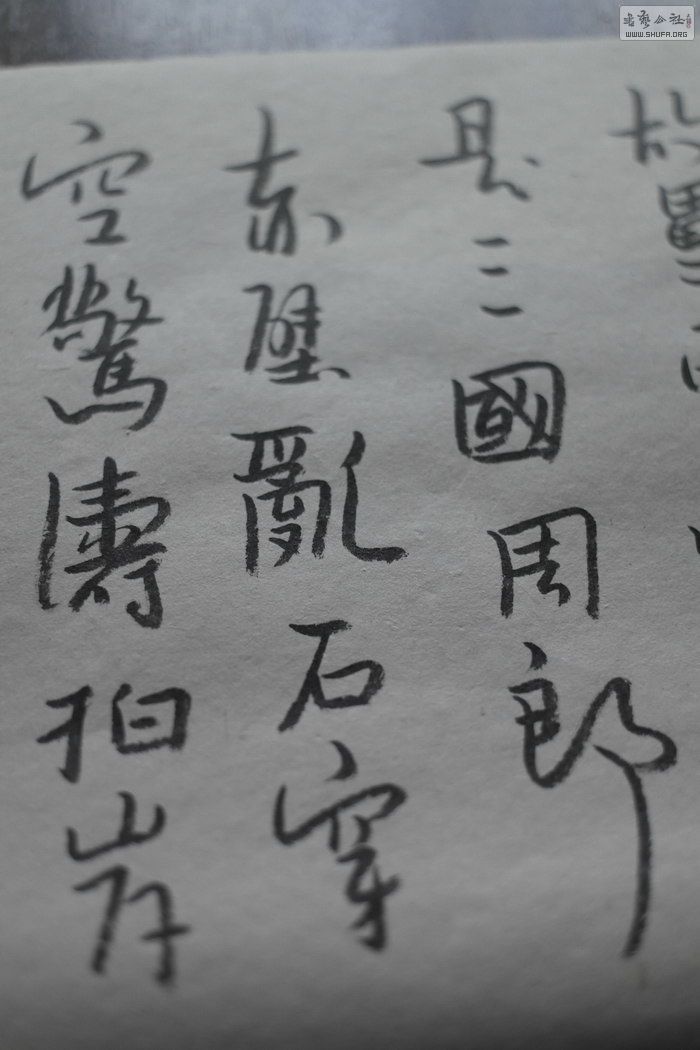 故壘西
是三國周郎
赤壁亂石穿
空驚濤拍岸
書藝公社
WWW.SHUFA.ORG